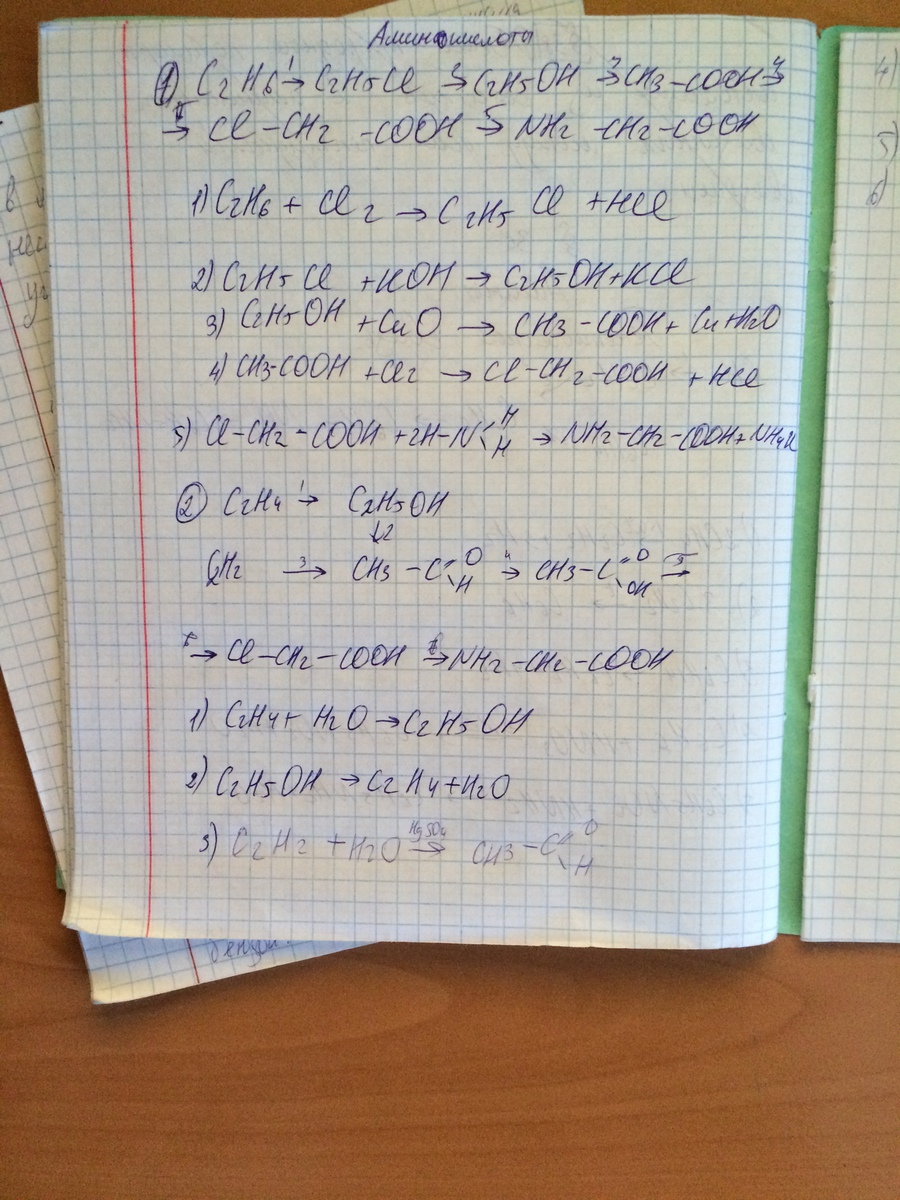 Аминокислоты
① C2H6 1→ C2H5Cl 2→ C2H5OH 3→ CH3-COOH 4→
→ Cl-CH2-COOH 5→ NH2-CH2-COOH
1) C2H6 + Cl2 → C2H5Cl + HCl
2) C2H5Cl + KOH → C2H5OH + KCl
3) C2H5OH + CuO → CH3-COOH + Cu + H2O
4) CH3-COOH + Cl2 → Cl-CH2-COOH + HCl
5) Cl-CH2-COOH + 2H-N<H H → NH2-CH2-COOH + NH4Cl
② C2H4 1→ C2H5OH
↓2
C2H2 3→ CH3-C=O\H 4→ CH3-C=O\OH 5→
→ Cl-CH2-COOH 6→ NH2-CH2-COOH
1) C2H4 + H2O → C2H5OH
2) C2H5OH → C2H4 + H2O
3) C2H2 + H2O HgSO4→ CH3-C=O\H
4)
5)
6)